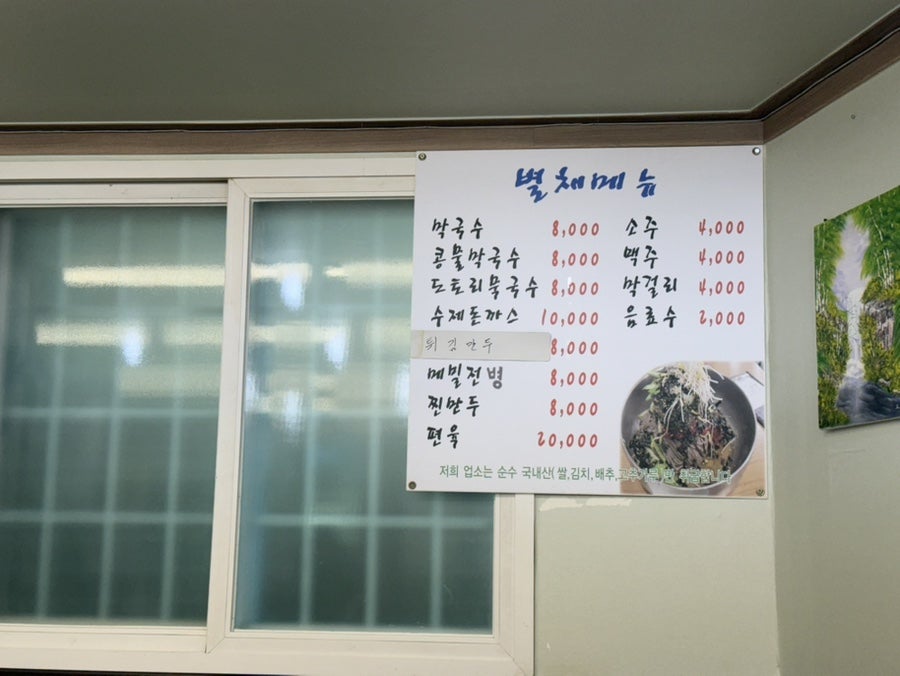 별채메뉴
막국수 8,000
콩물막국수 8,000
도토리묵국수 8,000
수제돈까스 10,000
튀김만두 8,000
메밀전병 8,000
찐만두 8,000
편육 20,000
소주 4,000
맥주 4,000
막걸리 4,000
음료수 2,000
저희 업소는 순수 국내산(쌀,김치,배추,고추가루)만